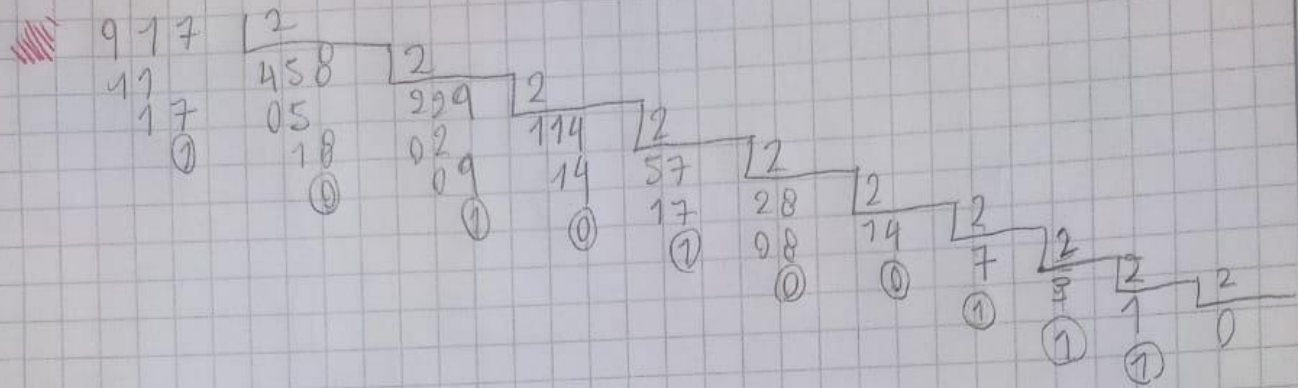 917 2
11 458 2
17 05 229 2
1 18 02 114 2
0 09 14 57 2
1 0 17 28 2
1 08 14 2
0 0 7 2
1 3 2
1 1 2
1 0